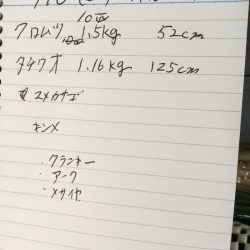 10匹
クロムツ 1.5kg 52cm
タチウオ 1.16kg 125cm
ユメカサゴ
キンメ
・クランキー
・アーク
・メサイヤ